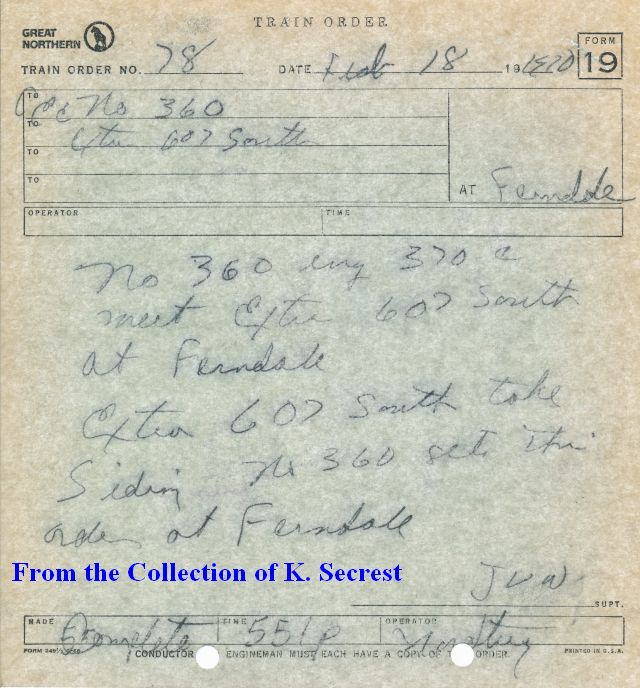 TRAIN ORDER
GREAT
NORTHERN
FORM
19
TRAIN ORDER NO. 78 DATE Feb 18 191970
TO No 360
TO Extra 607 South
TO
TO
AT Ferndale
OPERATOR TIME
No 360 eng 370 C
meet Extra 607 South
at Ferndale
Extra 607 South take
Siding No 360 gets this
order at Ferndale
From the Collection of K. Secrest
JVW
SUPT.
MADE Complete TIME 551 P OPERATOR
CONDUCTOR ENGINEMAN MUST EACH HAVE A COPY OF ORDER.
PRINTED IN U.S.A.